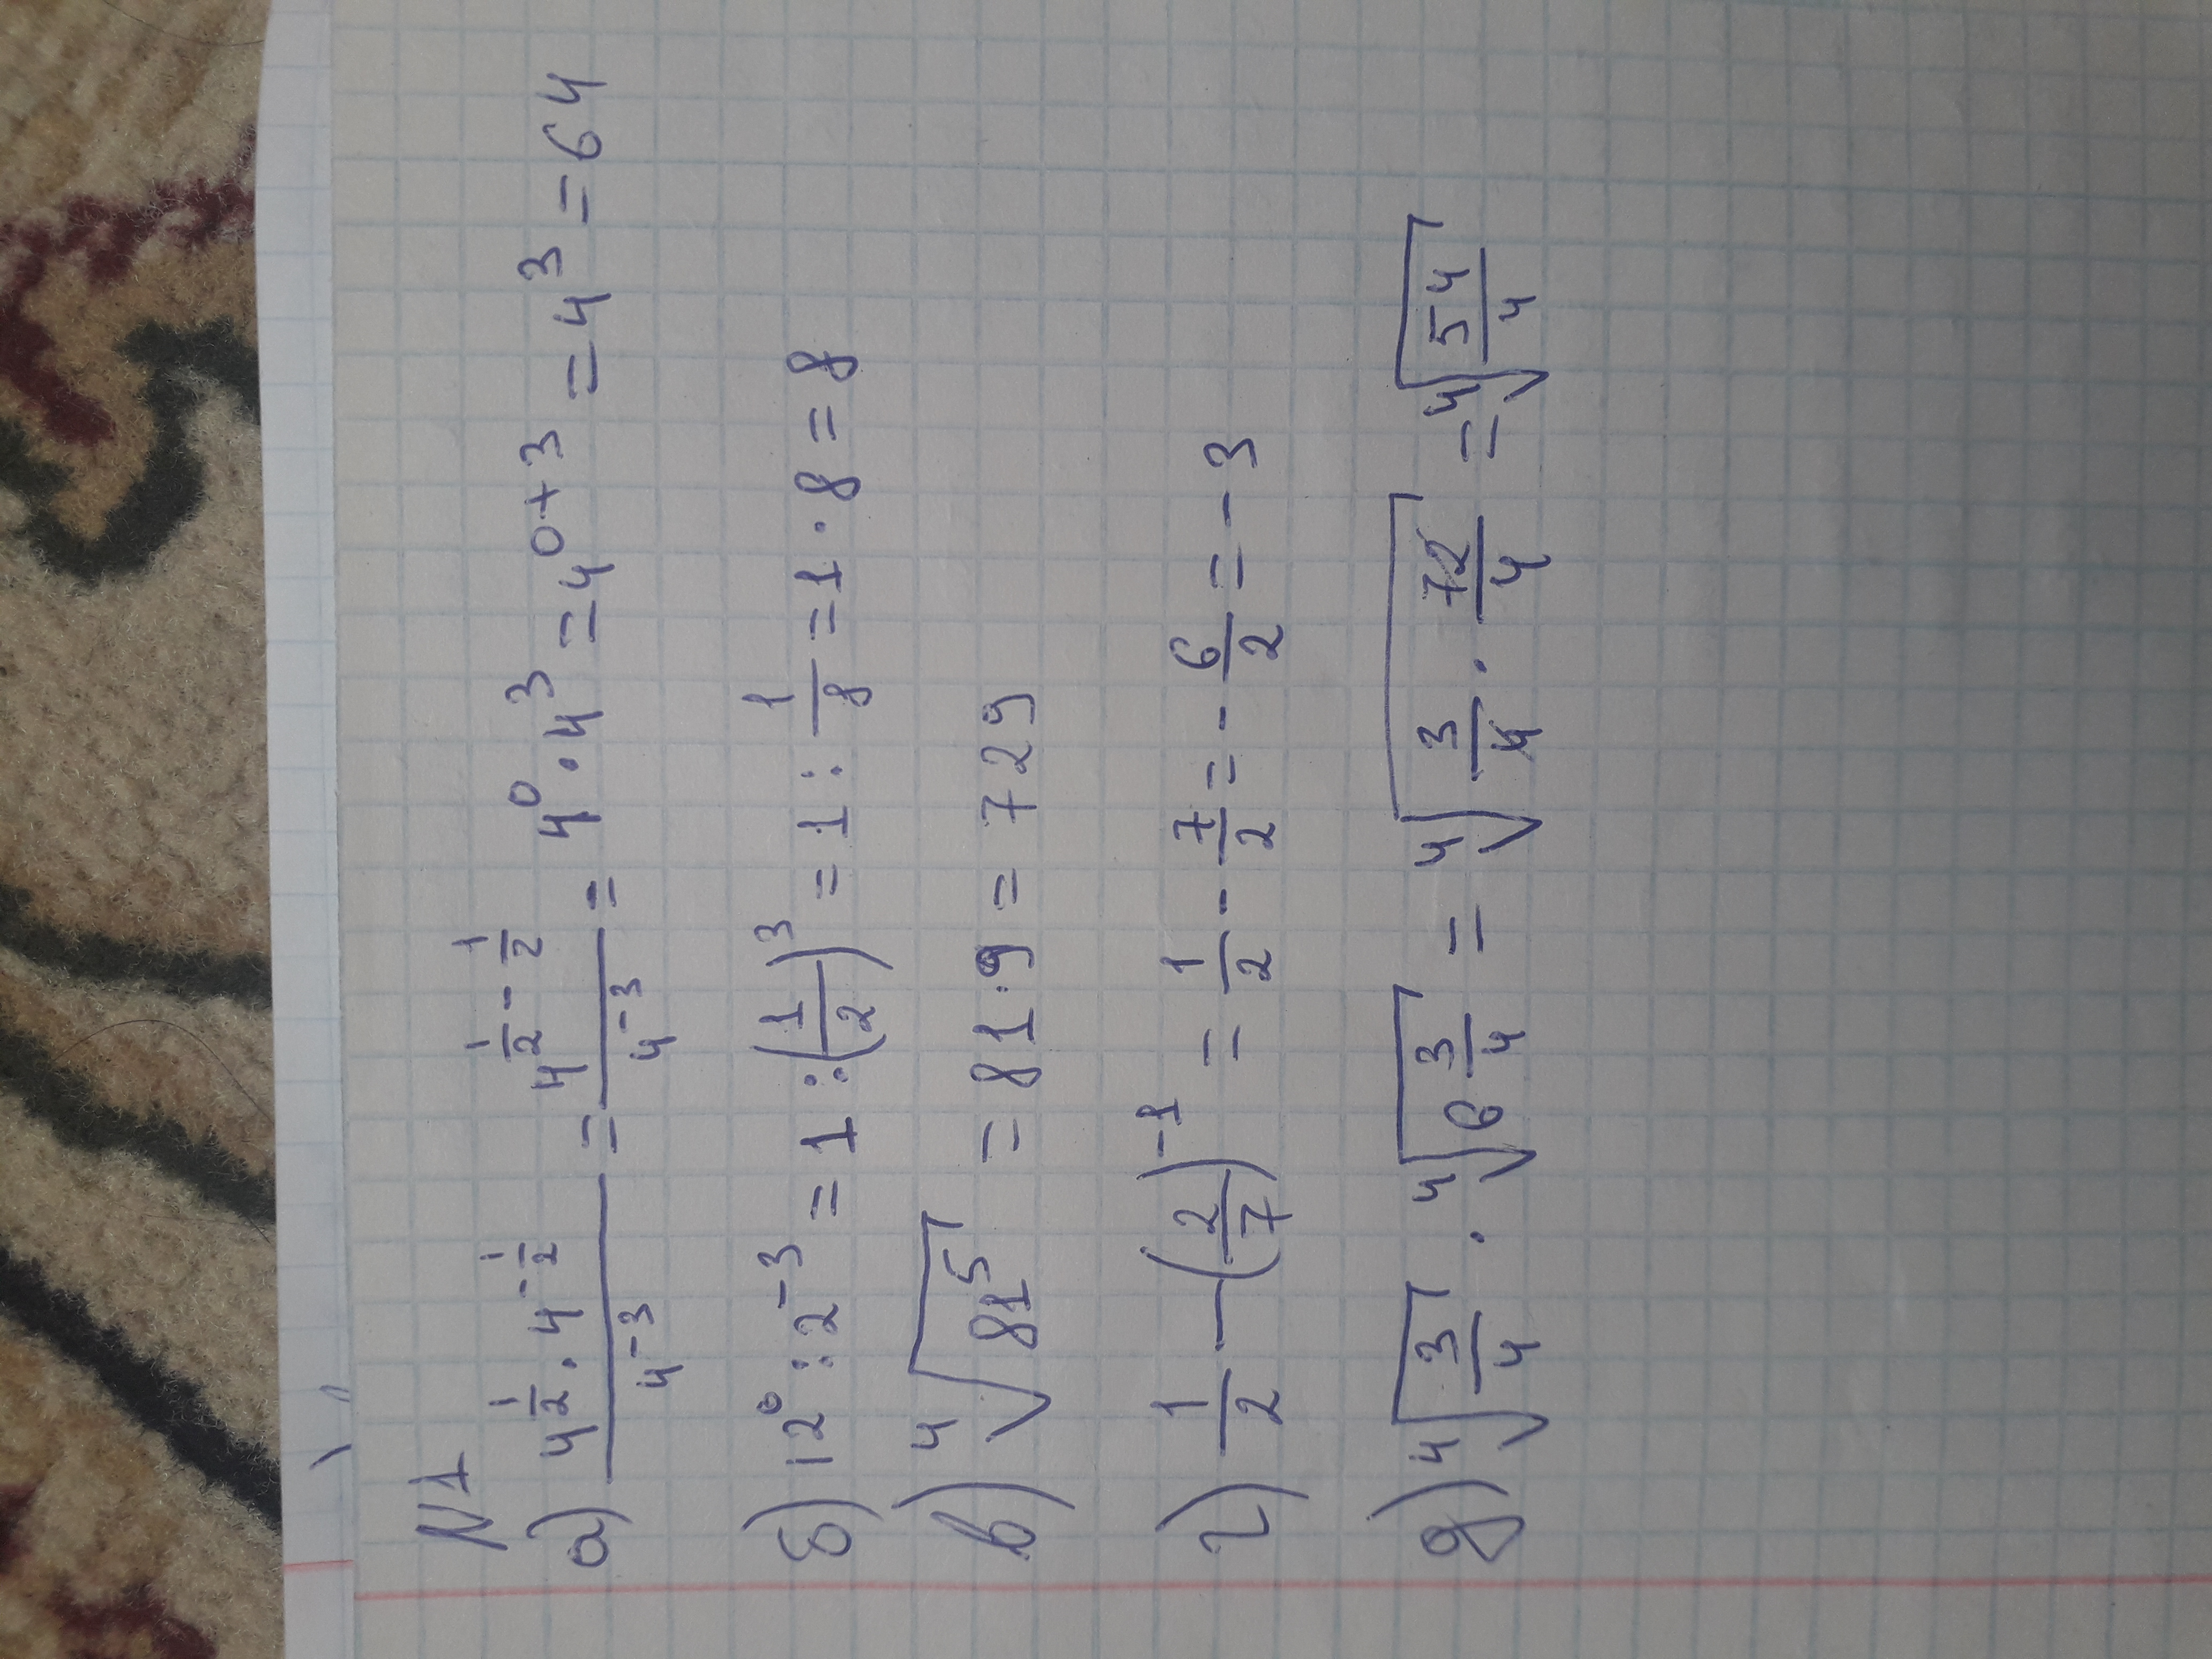 N1
а) (4^(1/2) · 4^(-1/2))/(4^(-3)) = (4^(1/2 - 1/2))/(4^(-3)) = 4^0 · 4^3 = 4^(0+3) = 4^3 = 64
б) 12^0 : 2^(-3) = 1 : (1/2)^3 = 1 : 1/8 = 1 · 8 = 8
в) ⁴√(81^5) = 81 · 9 = 729
г) 1/2 — (2/7)^(-1) = 1/2 - 7/2 = - 6/2 = - 3
д) ⁴√(3/4) · ⁴√(6 3/4) = ⁴√(3/4 · 72/4) = ⁴√(54/4)